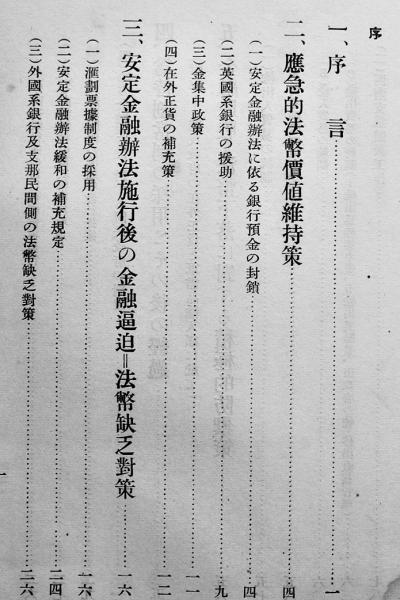 序
一、序　言……一
二、應急的法幣價値維持策……四
（一）安定金融辦法に依る銀行預金の封鎖……四
（二）英國系銀行の援助……九
（三）金集中政策……一一
（四）在外正貨の補充策……一二
三、安定金融辦法施行後の金融逼迫＝法幣缺乏對策……一六
（一）滙劃票據制度の採用……一六
（二）安定金融辦法緩和の補充規定……二四
（三）外國系銀行及支那民間側の法幣缺乏對策……二六
一